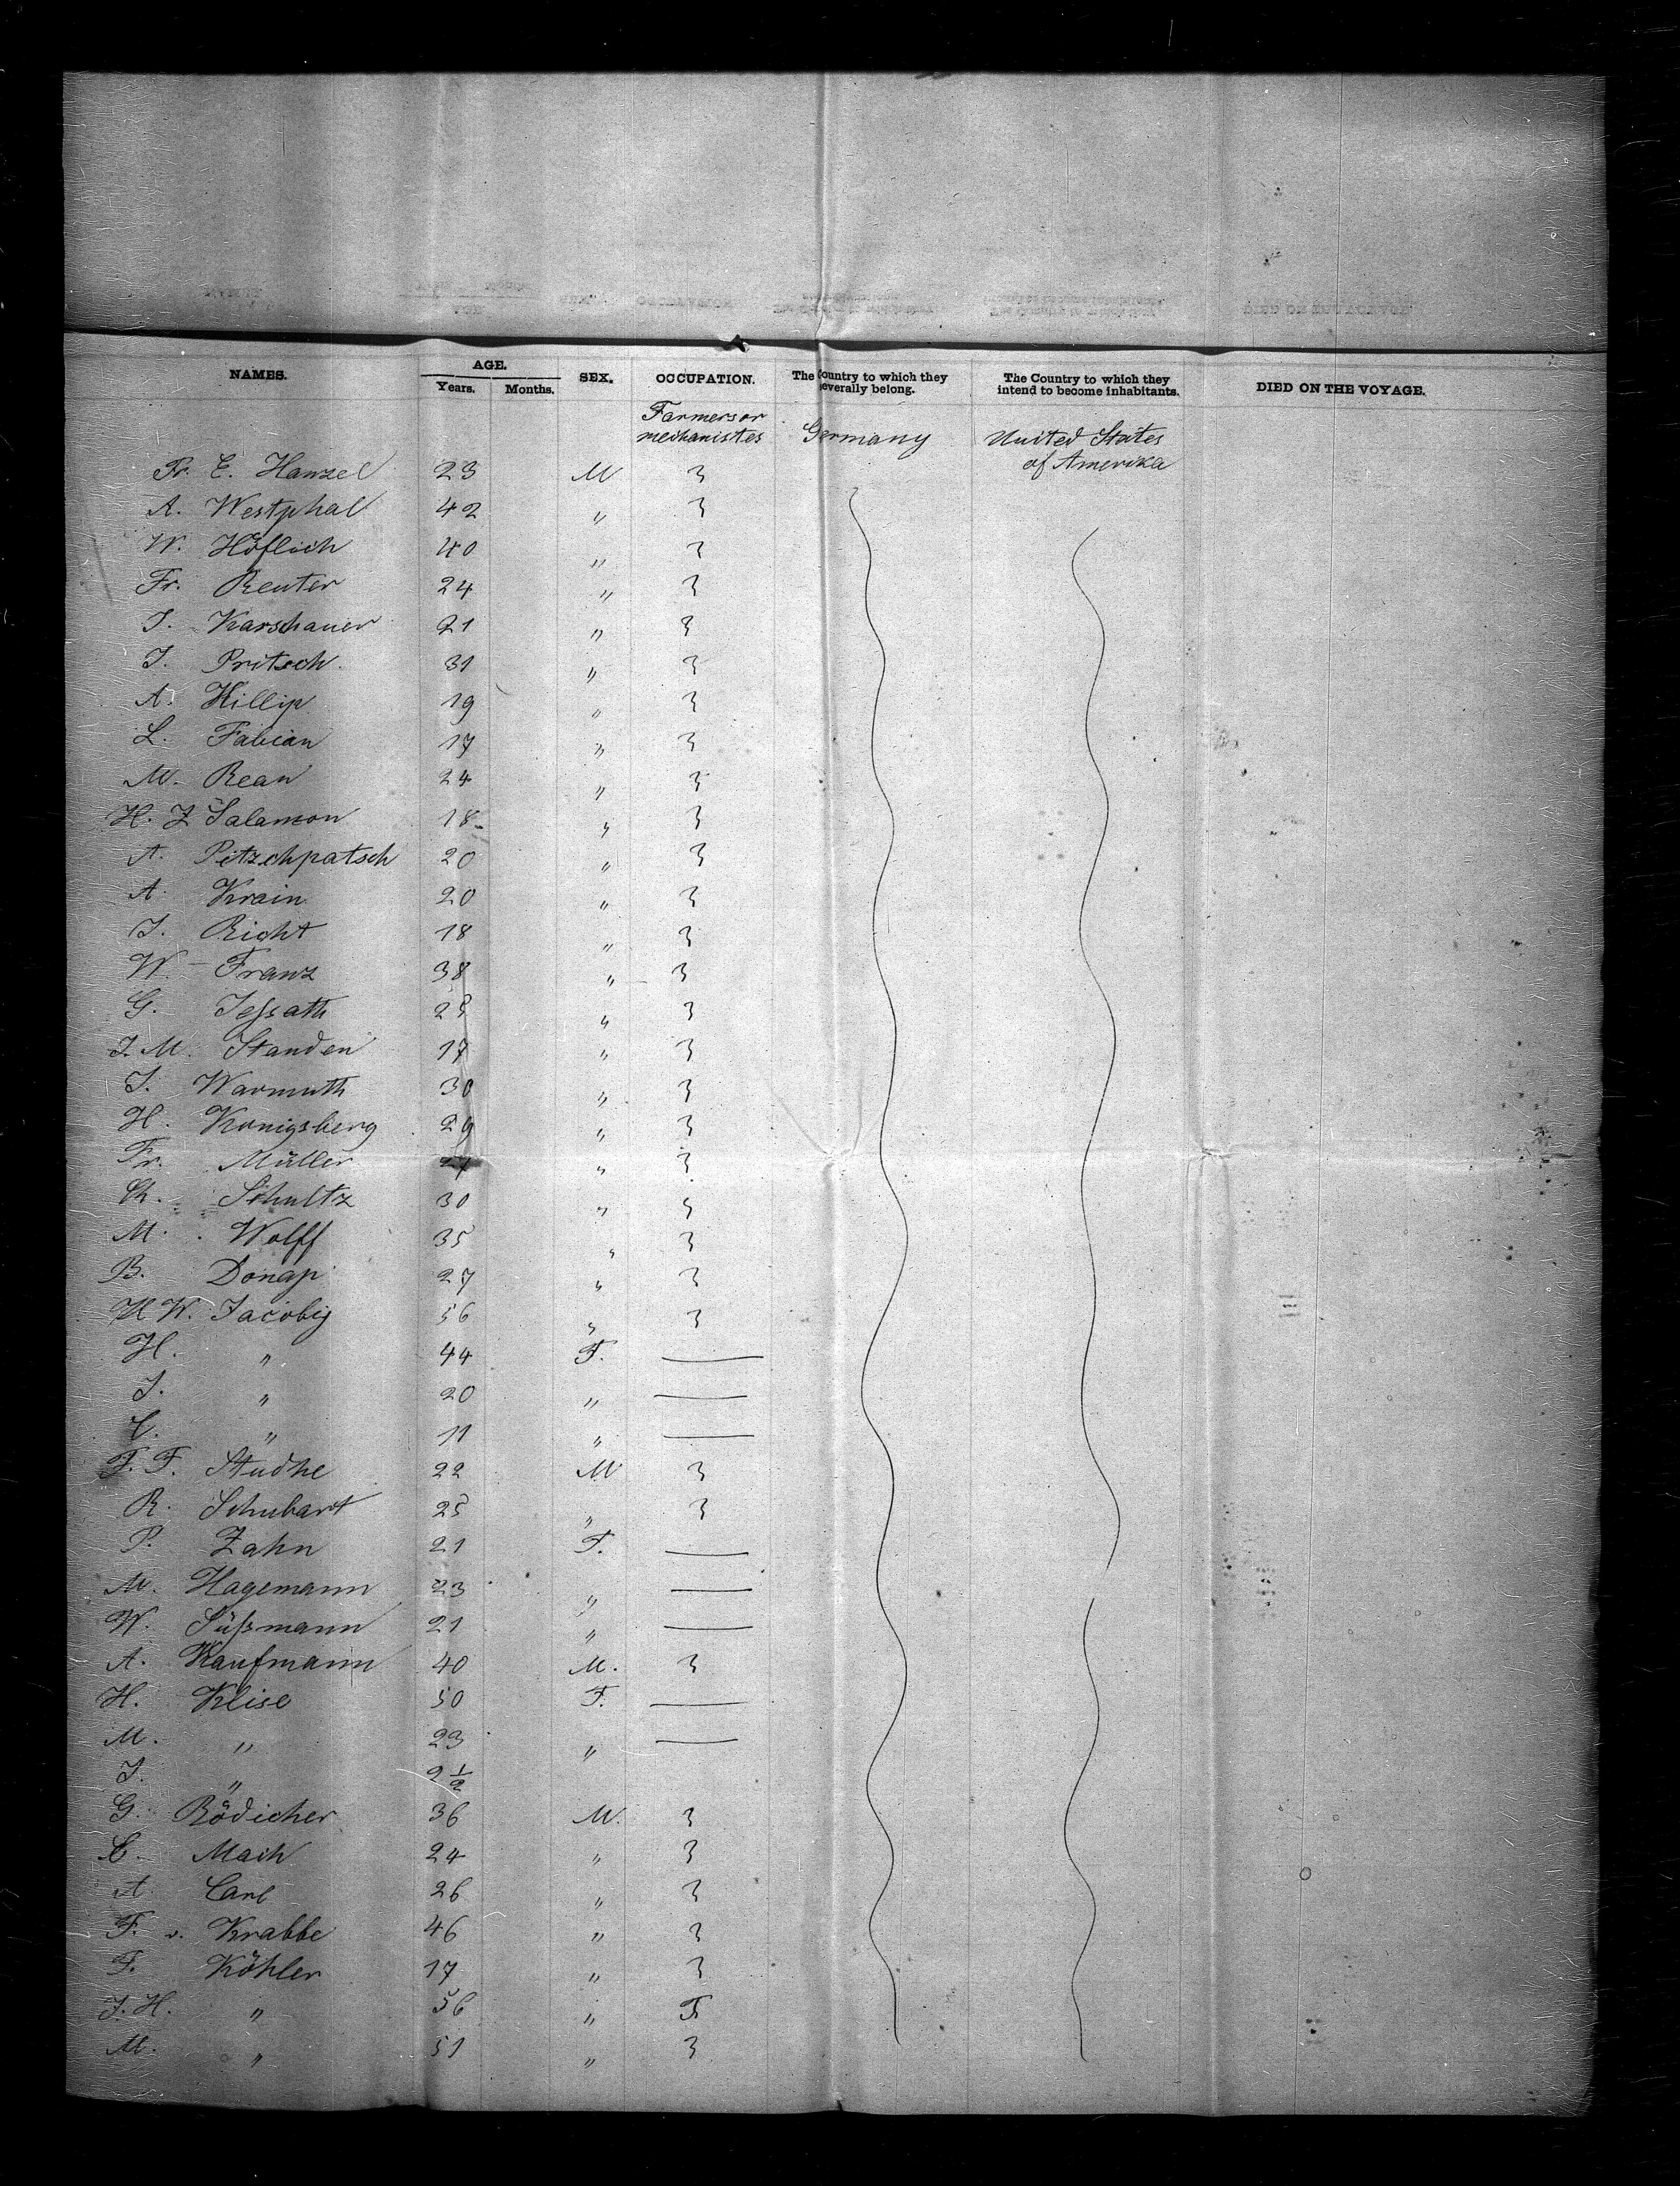 NAMES. AGE. SEX. OCCUPATION. The Country to which they severally belong. The Country to which they intend to become inhabitants. DIED ON THE VOYAGE.
Years. Months.
Farmers or mechanistes Germany United States of Amerika
Fr. E. Hanzel 23 M 3
A. Westphal 42 " 3
W. Höflich 40 " 3
Fr. Reuter 24 " 3
J. Karschauer 21 " 3
J. Pritsch 31 " 3
A. Hillip 19 " 3
L. Fabian 17 " 3
M. Rean 24 " 3
H. Z Salamon 18 " 3
A. Pitzchpatsch 20 " 3
A. Krain 20 " 3
J. Richt 18 " 3
W. Franz 38 " 3
G. Jeſsath 25 " 3
J. M. Standen 17 " 3
J. Warmuth 30 " 3
H. Konigsberg 29 " 3
Fr. Müller 27 " 3
Ch. Schultz 30 " 3
M. Wolff 35 " 3
B. Donap 27 " 3
H W. Jacobij 56 " 3
H. " 44 F. —
J. " 20 " —
C. " 11 " —
F. F. Studhe 22 M 3
R. Schubart 25 " 3
P. Zahn 21 F. —
M. Hagemann 23 " —
W. Süſsmann 21 " —
A. Kaufmann 40 M. 3
H. Klise 50 F. —
M. " 23 " —
J. " 2 1/2
G. Rödicher 36 M. 3
C. Mach 24 " 3
A. Carl 26 " 3
F. v. Krabbe 46 " 3
F. Köhler 17 " 3
J. H. " 56 " F
M. " 51 " 3